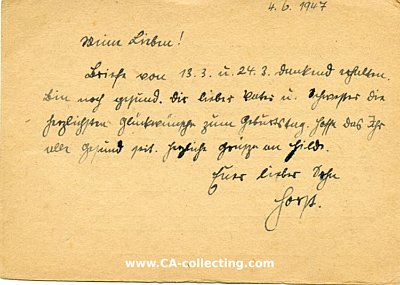 4.6.1947
Meine Lieben!
Briefe von 13.3. u. 24.3. dankend erhalten.
Bin noch gesund. Dir lieber Vater u. Schwester die
herzlichsten Glückwünsche zum Geburtstag. Hoffe das Ihr
alle gesund seit. Herzliche Grüsse an Hilde.
Euer lieber Sohn
Horst.
www.CA-collecting.com